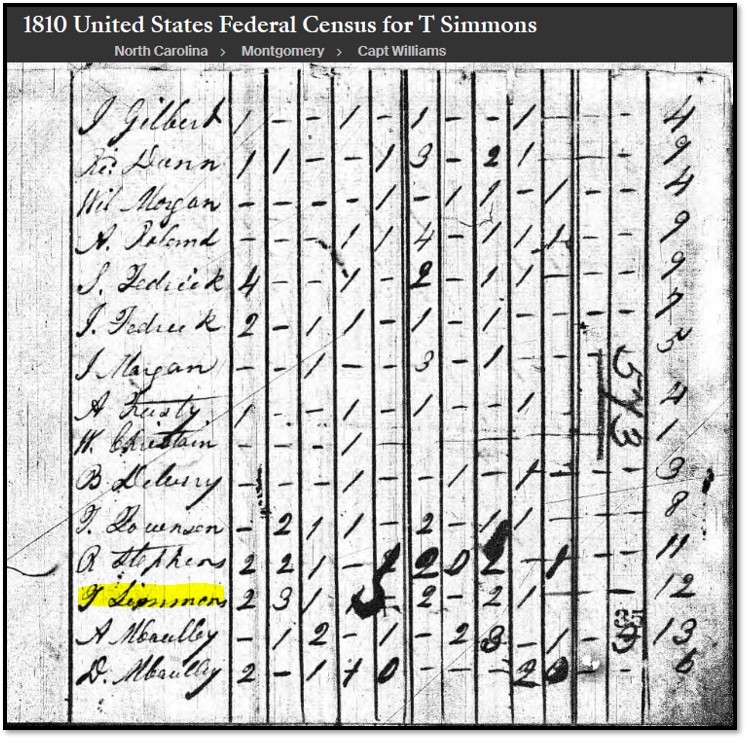 1810 United States Federal Census for T Simmons
North Carolina > Montgomery > Capt Williams
J Gilbert 1 - - 1 - 1 - - 1 - - - 4
Dunn 1 1 - - 1 3 - 2 1 - - - 9
Wil Morgan - - - - 1 - 1 1 - 1 - - 4
A. Roland - - - 1 1 4 - 1 1 1 - - 9
S. Fedrick 4 - - 1 - 2 - 1 1 - - - 9
J. Fedrick 2 - 1 1 - 1 - 1 - - - - 7
J Morgan - - 1 - - 3 - 1 - - -
A Trusty 1 - - 1 - 1 - - 1 - - 4
573
W. Christain - - - 1 - - - - - - - 1
B Deberry - - - 1 - - 1 - 1 - - - 3
T. Lowenson - 2 1 1 - 2 - 1 1 - - - 8
R Stephens 2 2 1 - 2 0 - - 11
T Simmons 2 3 1 - 2 - 2 1 - - - 12
A - 1 2 - 1 - 2 3 - 1 - 13
D. 2 - 1 1 0 - - - 2 - - 6